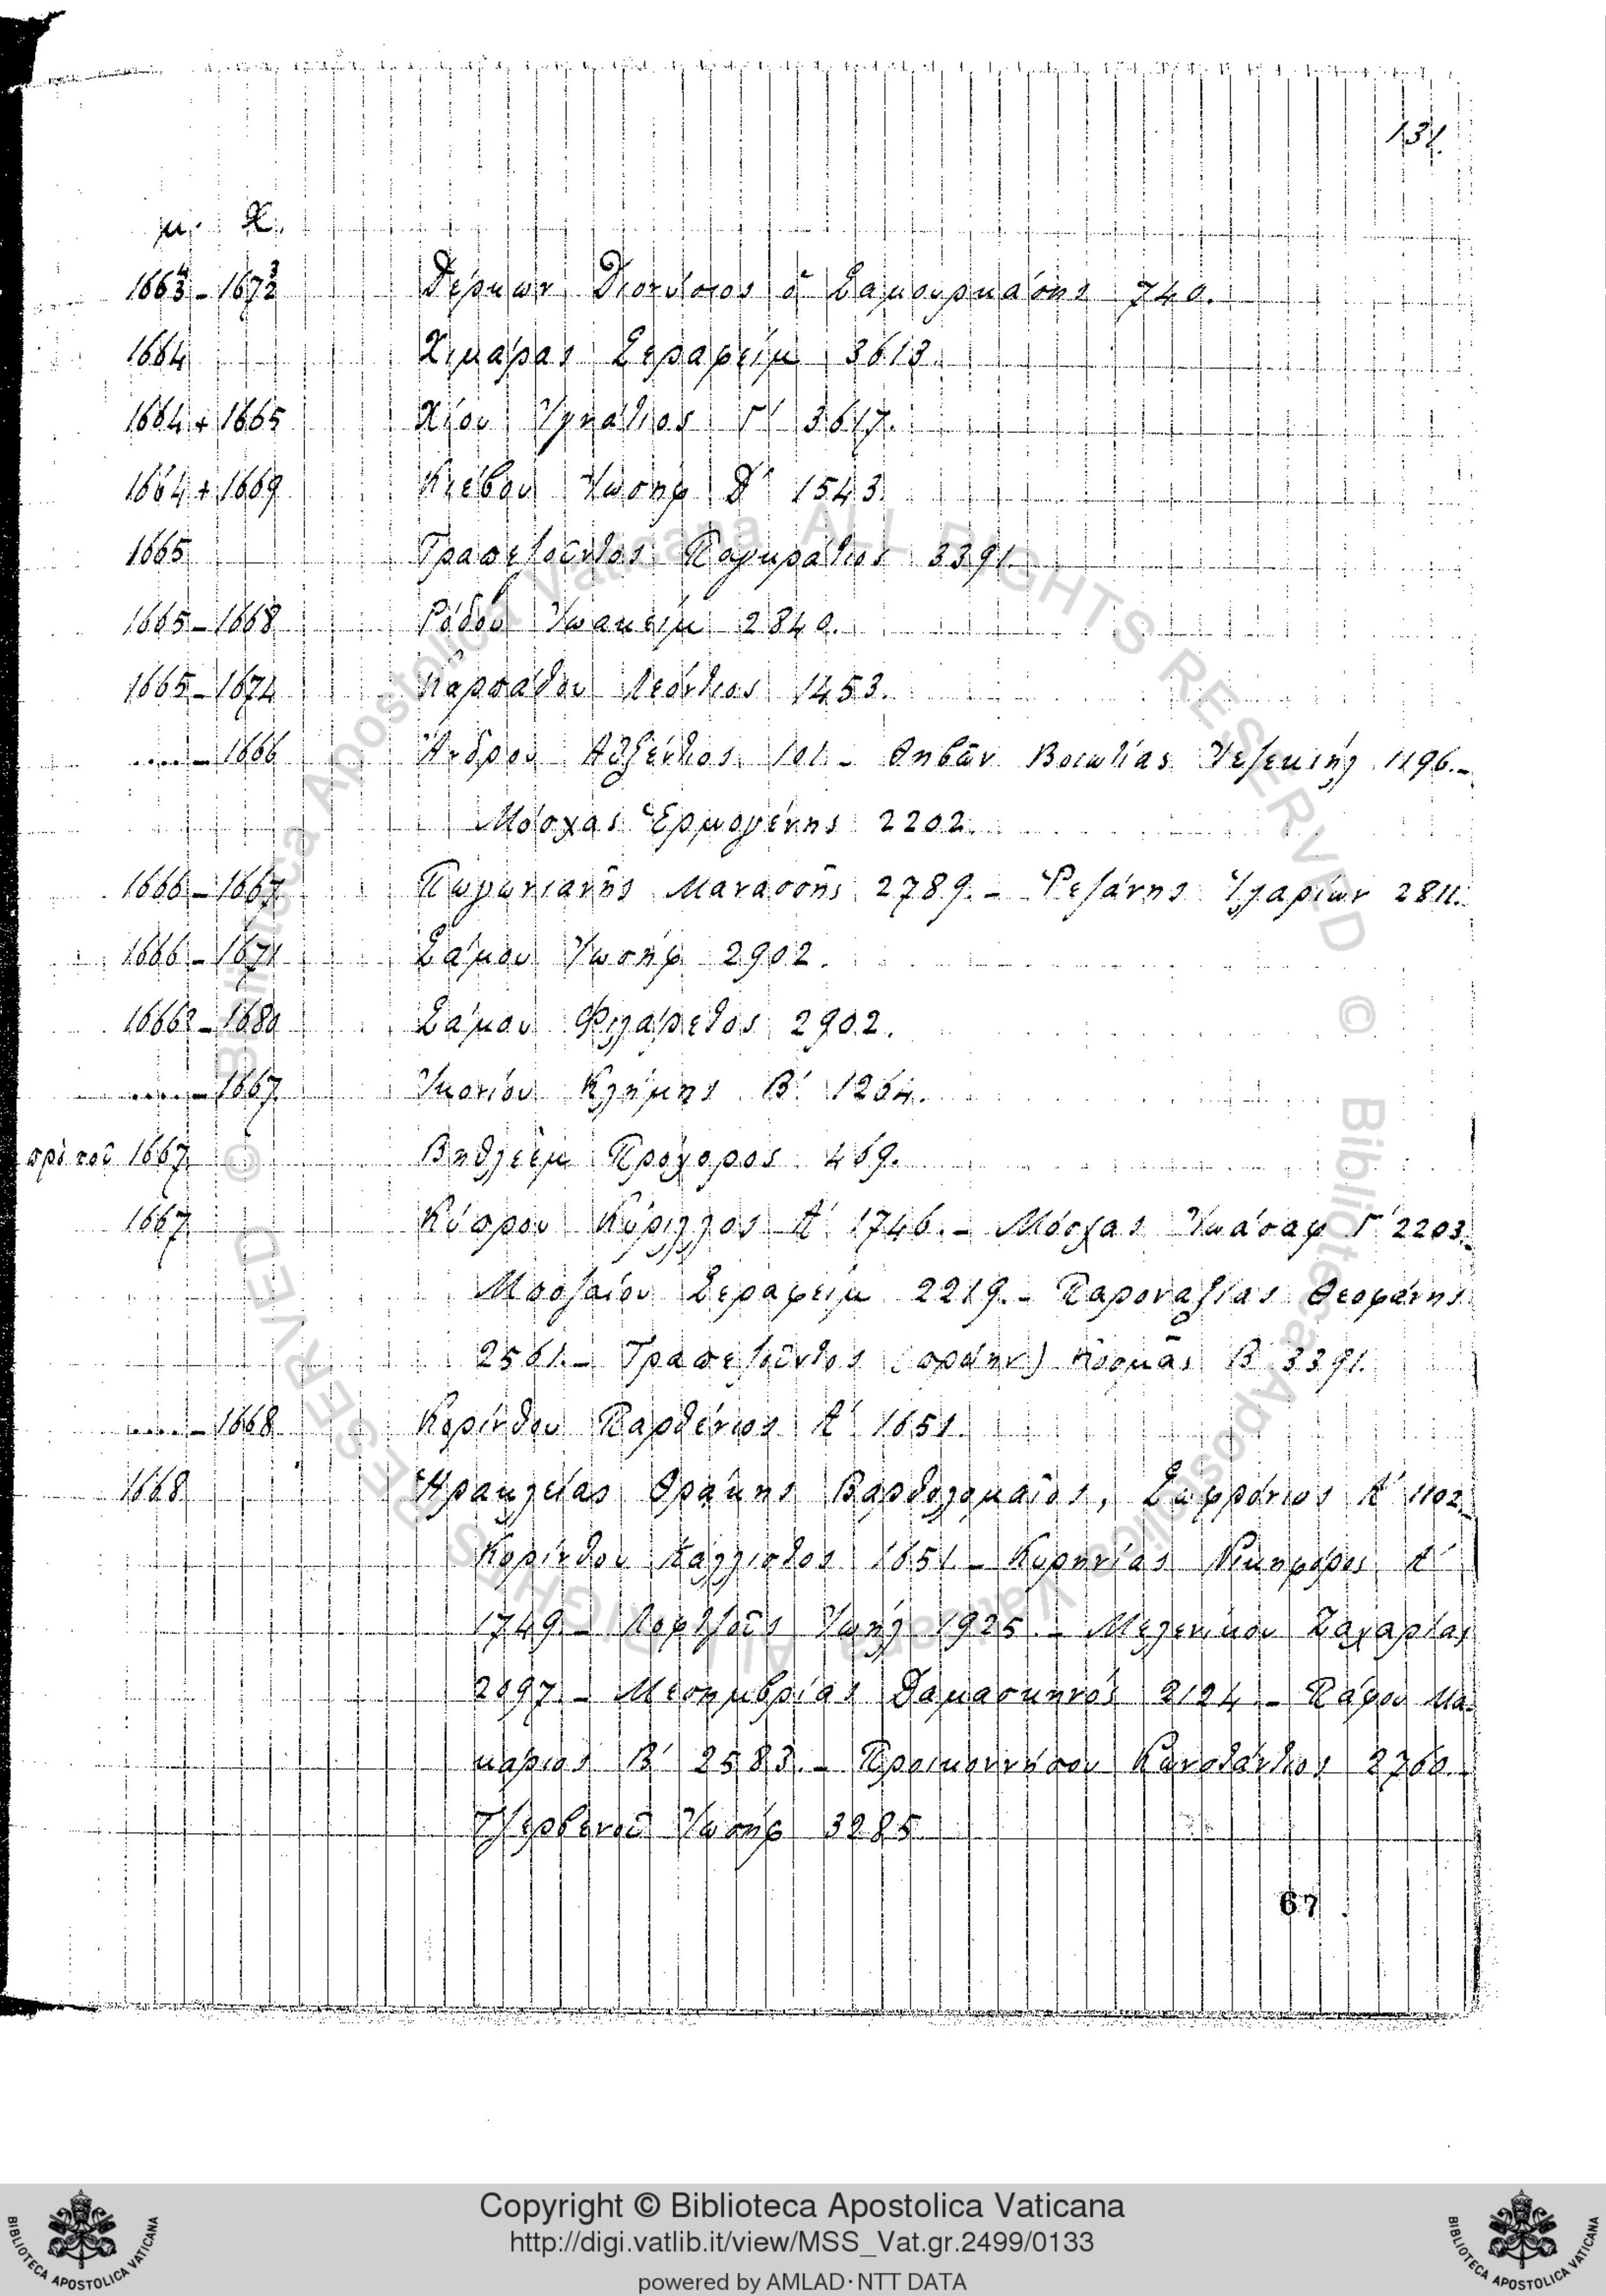 131.
μ. Χ.
1663-1672 Δέρκων Διονύσιος ὁ 740.
1664 Χιμάρας Σεραφείμ 3613.
1664 + 1665 Χίου Ἰγνάτιος Γʹ 3617.
1664 + 1669 Κιέβου Ἰωσήφ Δʹ 1543.
1665 Τραπεζοῦντος Παγκράτιος 3391.
1665-1668 Ῥόδου Ἰωακείμ 2840.
1665-1674 Καρπάθου Λεόντιος 1453.
.....-1666 Ἄνδρου Αὐξέντιος 101.- Θηβῶν Βοιωτίας Ἰεζεκιήλ 1196.-
Μόσχας Ἑρμογένης 2202.
1666-1667 Πωγωνιανῆς Μανασσῆς 2789.- Ῥεζάνης Ἱλαρίων 2811.
1666-1671 Σάμου Ἰωσήφ 2902.
1666?-1680 Σάμου Φιλάρετος 2902.
.....-1667 Ἰκονίου Κλήμης Βʹ 1264.
πρὸ τοῦ 1667 Βηθλεὲμ Πρόχορος 469.
1667 Κύπρου Κύριλλος Αʹ 1746.- Μόσχας Ἰωάσαφ Γʹ 2203.-
Σεραφείμ 2219.- Παροναξίας Θεοφάνης
2561.- Τραπεζοῦντος (πρώην) Κοσμᾶς Βʹ 3391.
.....-1668 Κορίνθου Παρθένιος Αʹ 1651.
1668 Ἡρακλείας Θράκης Βαρθολομαῖος, Σωφρόνιος Αʹ 1102.-
Κορίνθου Κάλλιστος 1651.- Κυρηνίας Νικηφόρος Αʹ
1749.- Ἰωήλ 1925.- Μελενίκου Ζαχαρίας
2097.- Μεσημβρίας Δαμασκηνός 2124.- Πάφου Μα-
κάριος Βʹ 2583.- Προικοννήσου 2760.-
Τζερβενοῦ Ἰωσήφ 3285
67
Copyright © Biblioteca Apostolica Vaticana
http://digi.vatlib.it/view/MSS_Vat.gr.2499/0133
powered by AMLAD·NTT DATA
BIBLIOTECA APOSTOLICA VATICANA
BIBLIOTECA APOSTOLICA VATICANA